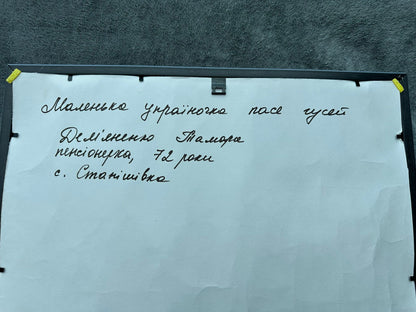 Маленька україночка пасе гусей
Дем'яненко Тамара
пенсіонерка, 72 роки
с. Станішівка